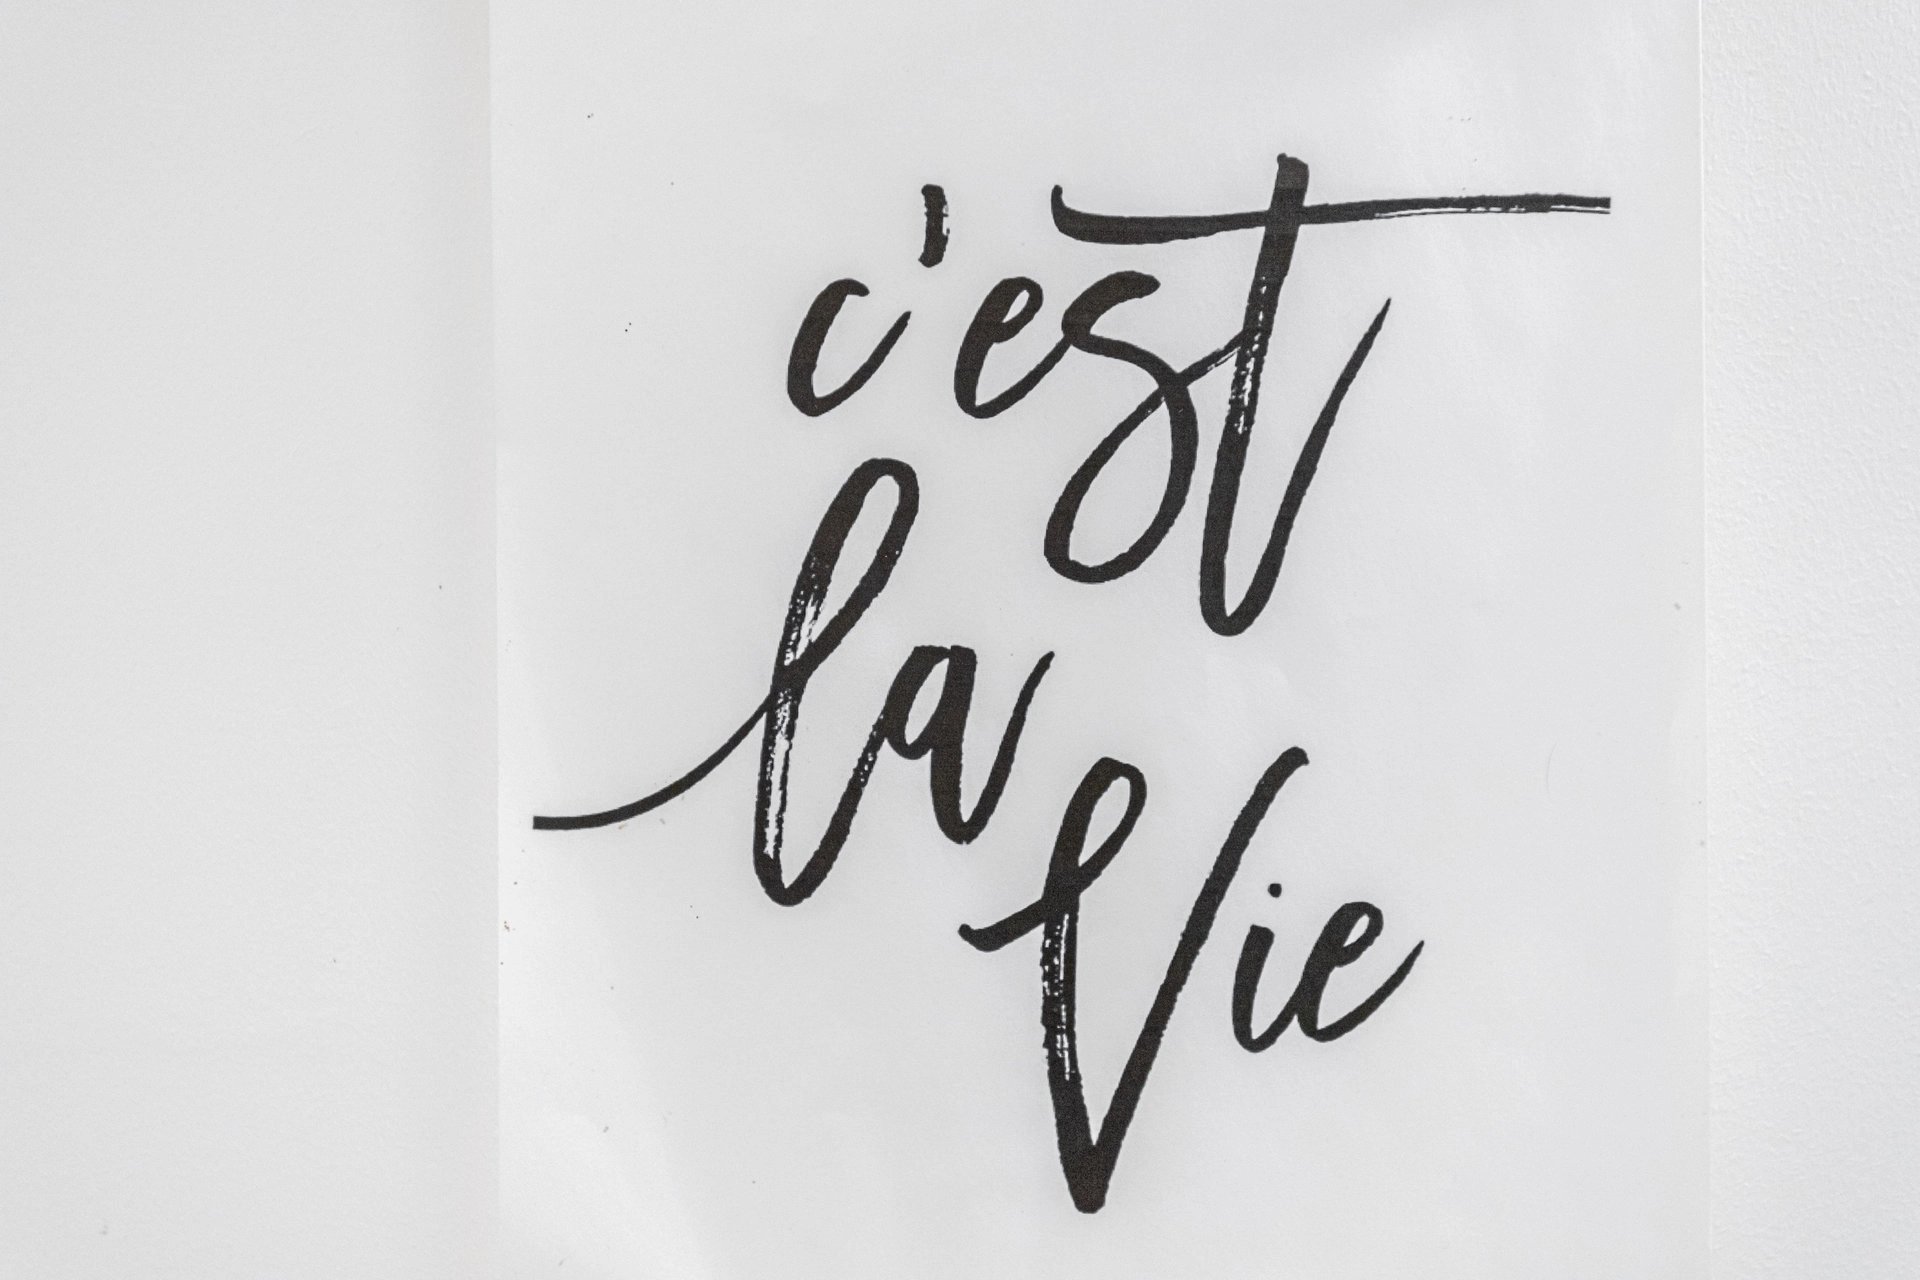 c'est
la
Vie